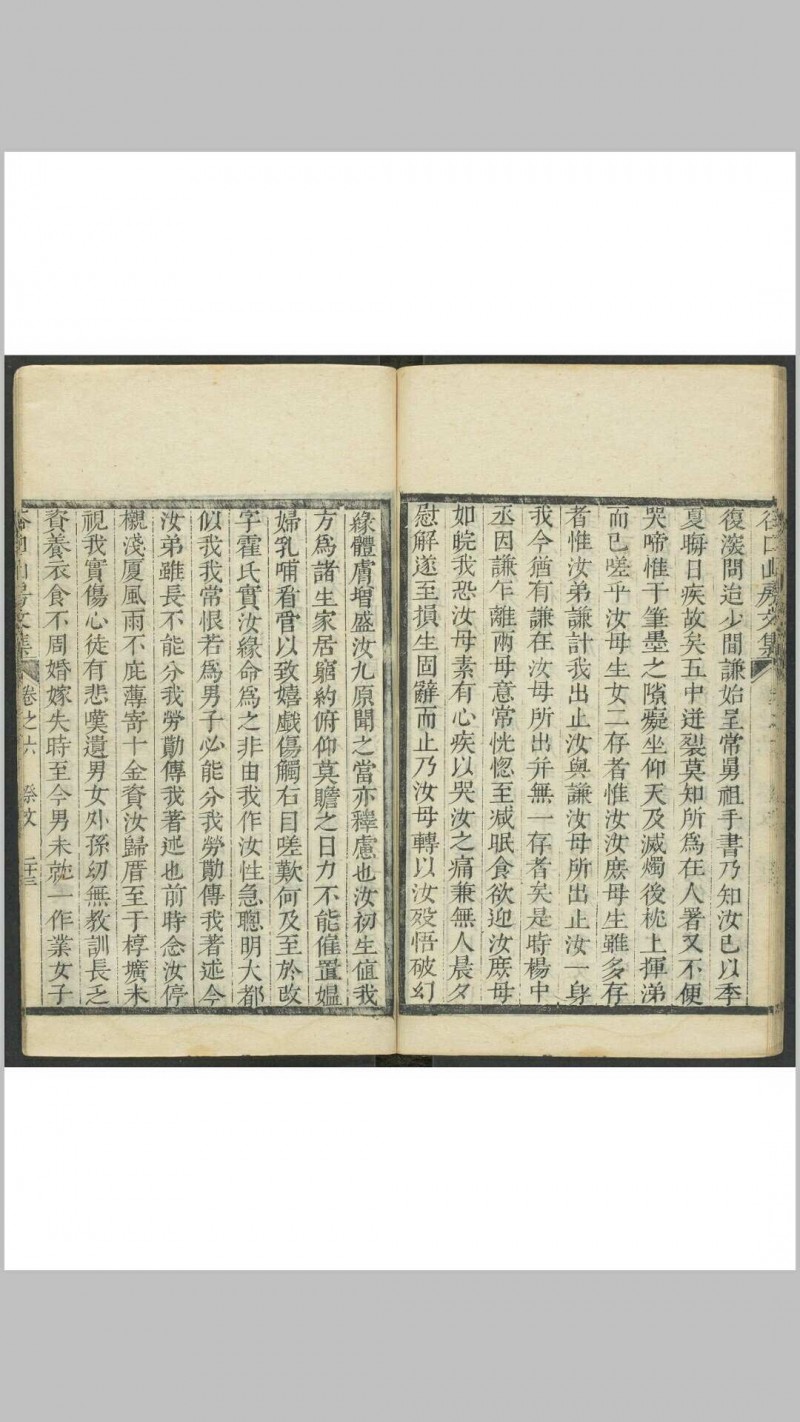 谷口山房文集
復淡問迨少間謙始呈常舅祖手書乃知汝已以季
夏晦日疾故矣五中迸裂莫知所爲在人署又不便
哭啼惟于筆墨之隙癡坐仰天及滅燭後枕上揮涕
而已嗟乎汝母生女二存者惟汝汝庶母生雖多存
者惟汝弟謙計我出止汝與謙汝母所出止汝一身
我今猶有謙在汝母所出幷無一存者矣是時楊中
丞因謙乍離兩母意常恍惚至減眠食欲迎汝庶母
如皖我恐汝母素有心疾以哭汝之痛兼無人晨夕
慰解遂至損生固辭而止乃汝母轉以汝歿悟破幻
緣體膚增盛汝九原聞之當亦釋慮也汝初生値我
方爲諸生家居窮約俯仰莫贍之日力不能僱置媼
婦乳哺看管以致嬉戲傷觸右目嗟歎何及至於改
字霍氏實汝緣命爲之非由我作汝性急聰明大都
似我我常恨若爲男子必能分我勞勩傳我著述今
汝弟雖長不能分我勞勩傳我著述也前時念汝停
櫬淺厦風雨不庇薄寄十金資汝歸厝至于椁壙未
視我實傷心徒有悲嘆遺男女外孫幼無教訓長乏
資養衣食不周婚嫁失時至今男未就一作業女子
谷口山房文集 卷之六 祭文 二十三